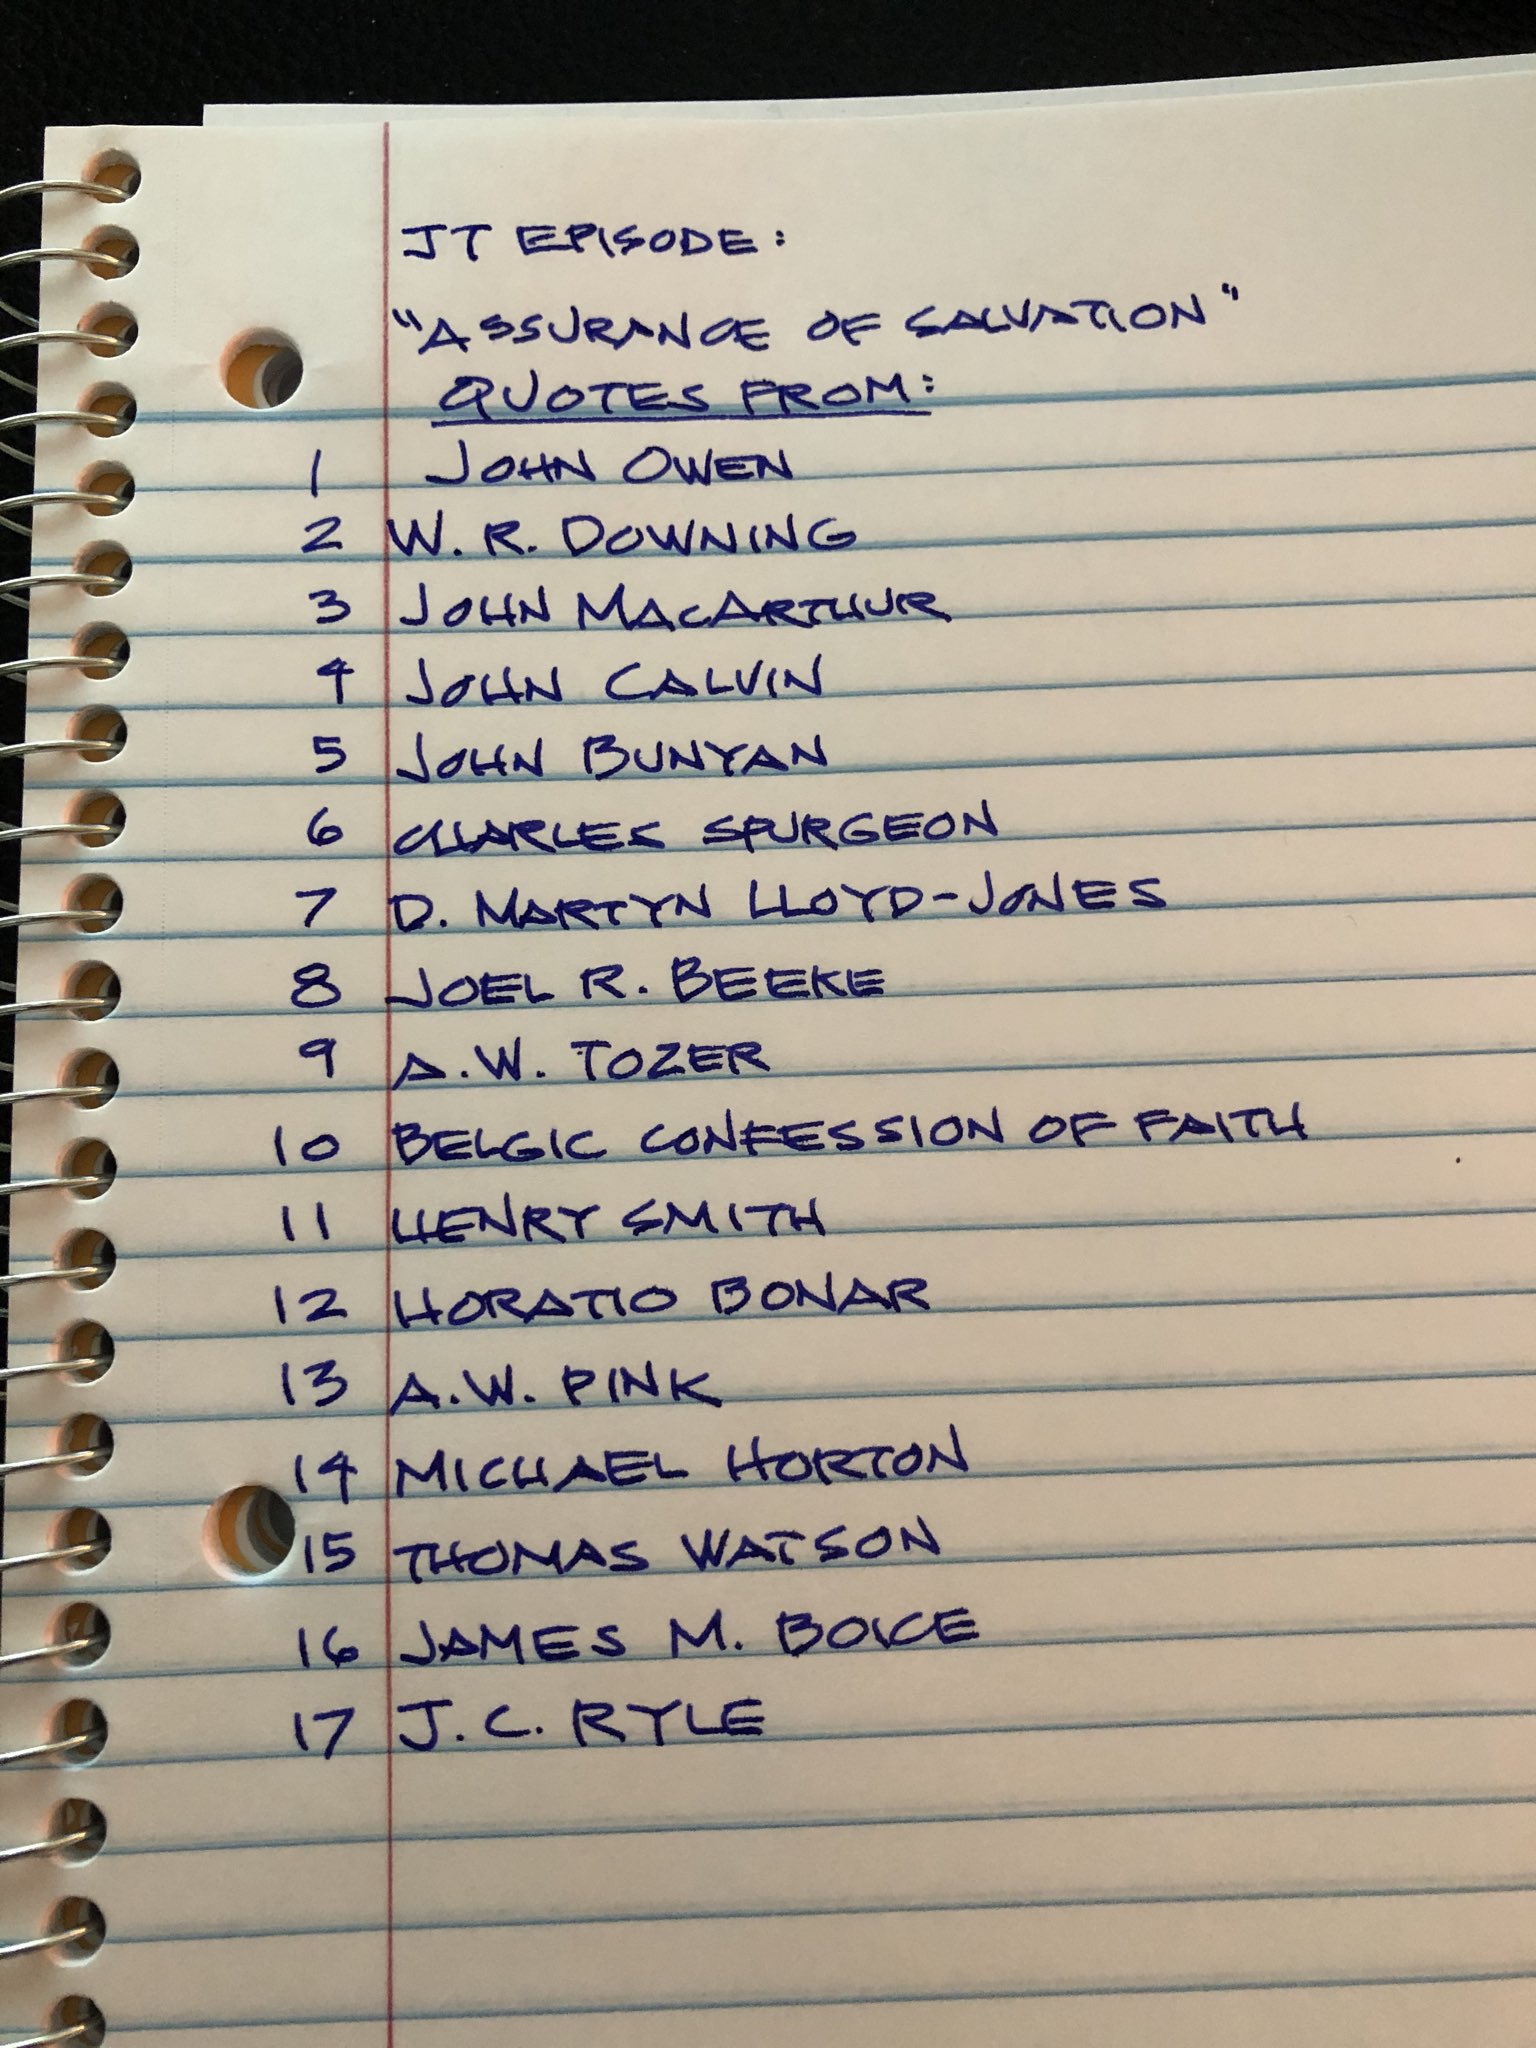 JT EPISODE:
"ASSURANCE OF SALVATION"
QUOTES FROM:
1 JOHN OWEN
2 W. R. DOWNING
3 JOHN MACARTHUR
4 JOHN CALVIN
5 JOHN BUNYAN
6 CHARLES SPURGEON
7 D. MARTYN LLOYD-JONES
8 JOEL R. BEEKE
9 A.W. TOZER
10 BELGIC CONFESSION OF FAITH
11 HENRY SMITH
12 HORATIO BONAR
13 A.W. PINK
14 MICHAEL HORTON
15 THOMAS WATSON
16 JAMES M. BOICE
17 J.C. RYLE